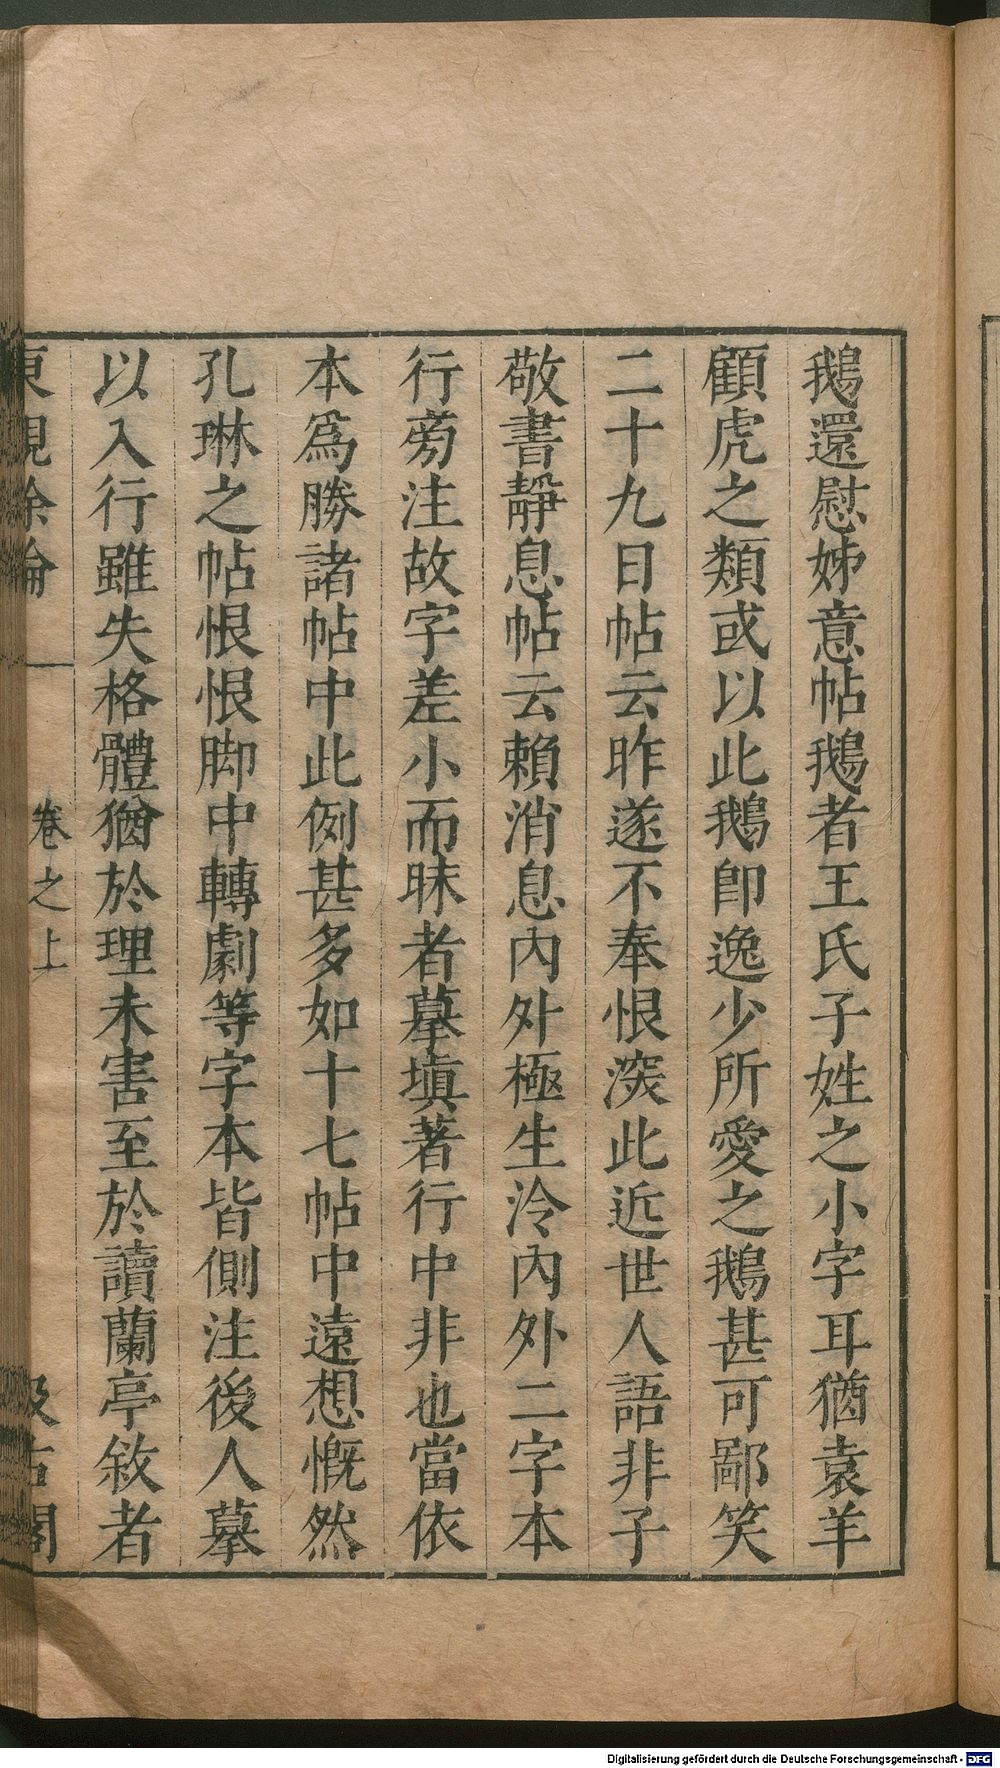 鵝還慰姊意帖鵝者王氏子姓之小字耳猶袁羊
顧虎之類或以此鵝卽逸少所愛之鵝甚可鄙笑
二十九日帖云昨遂不奉恨深此近世人語非子
敬書靜息帖云賴消息內外極生冷內外二字本
行旁注故字差小而昧者摹塡著行中非也當依
本爲勝諸帖中此例甚多如十七帖中遠想慨然
孔琳之帖恨恨脚中轉劇等字本皆側注後人摹
以入行雖失格體猶於理未害至於讀蘭亭敘者
東觀餘論 卷之上 汲古閣
Digitalisierung gefördert durch die Deutsche Forschungsgemeinschaft - DFG